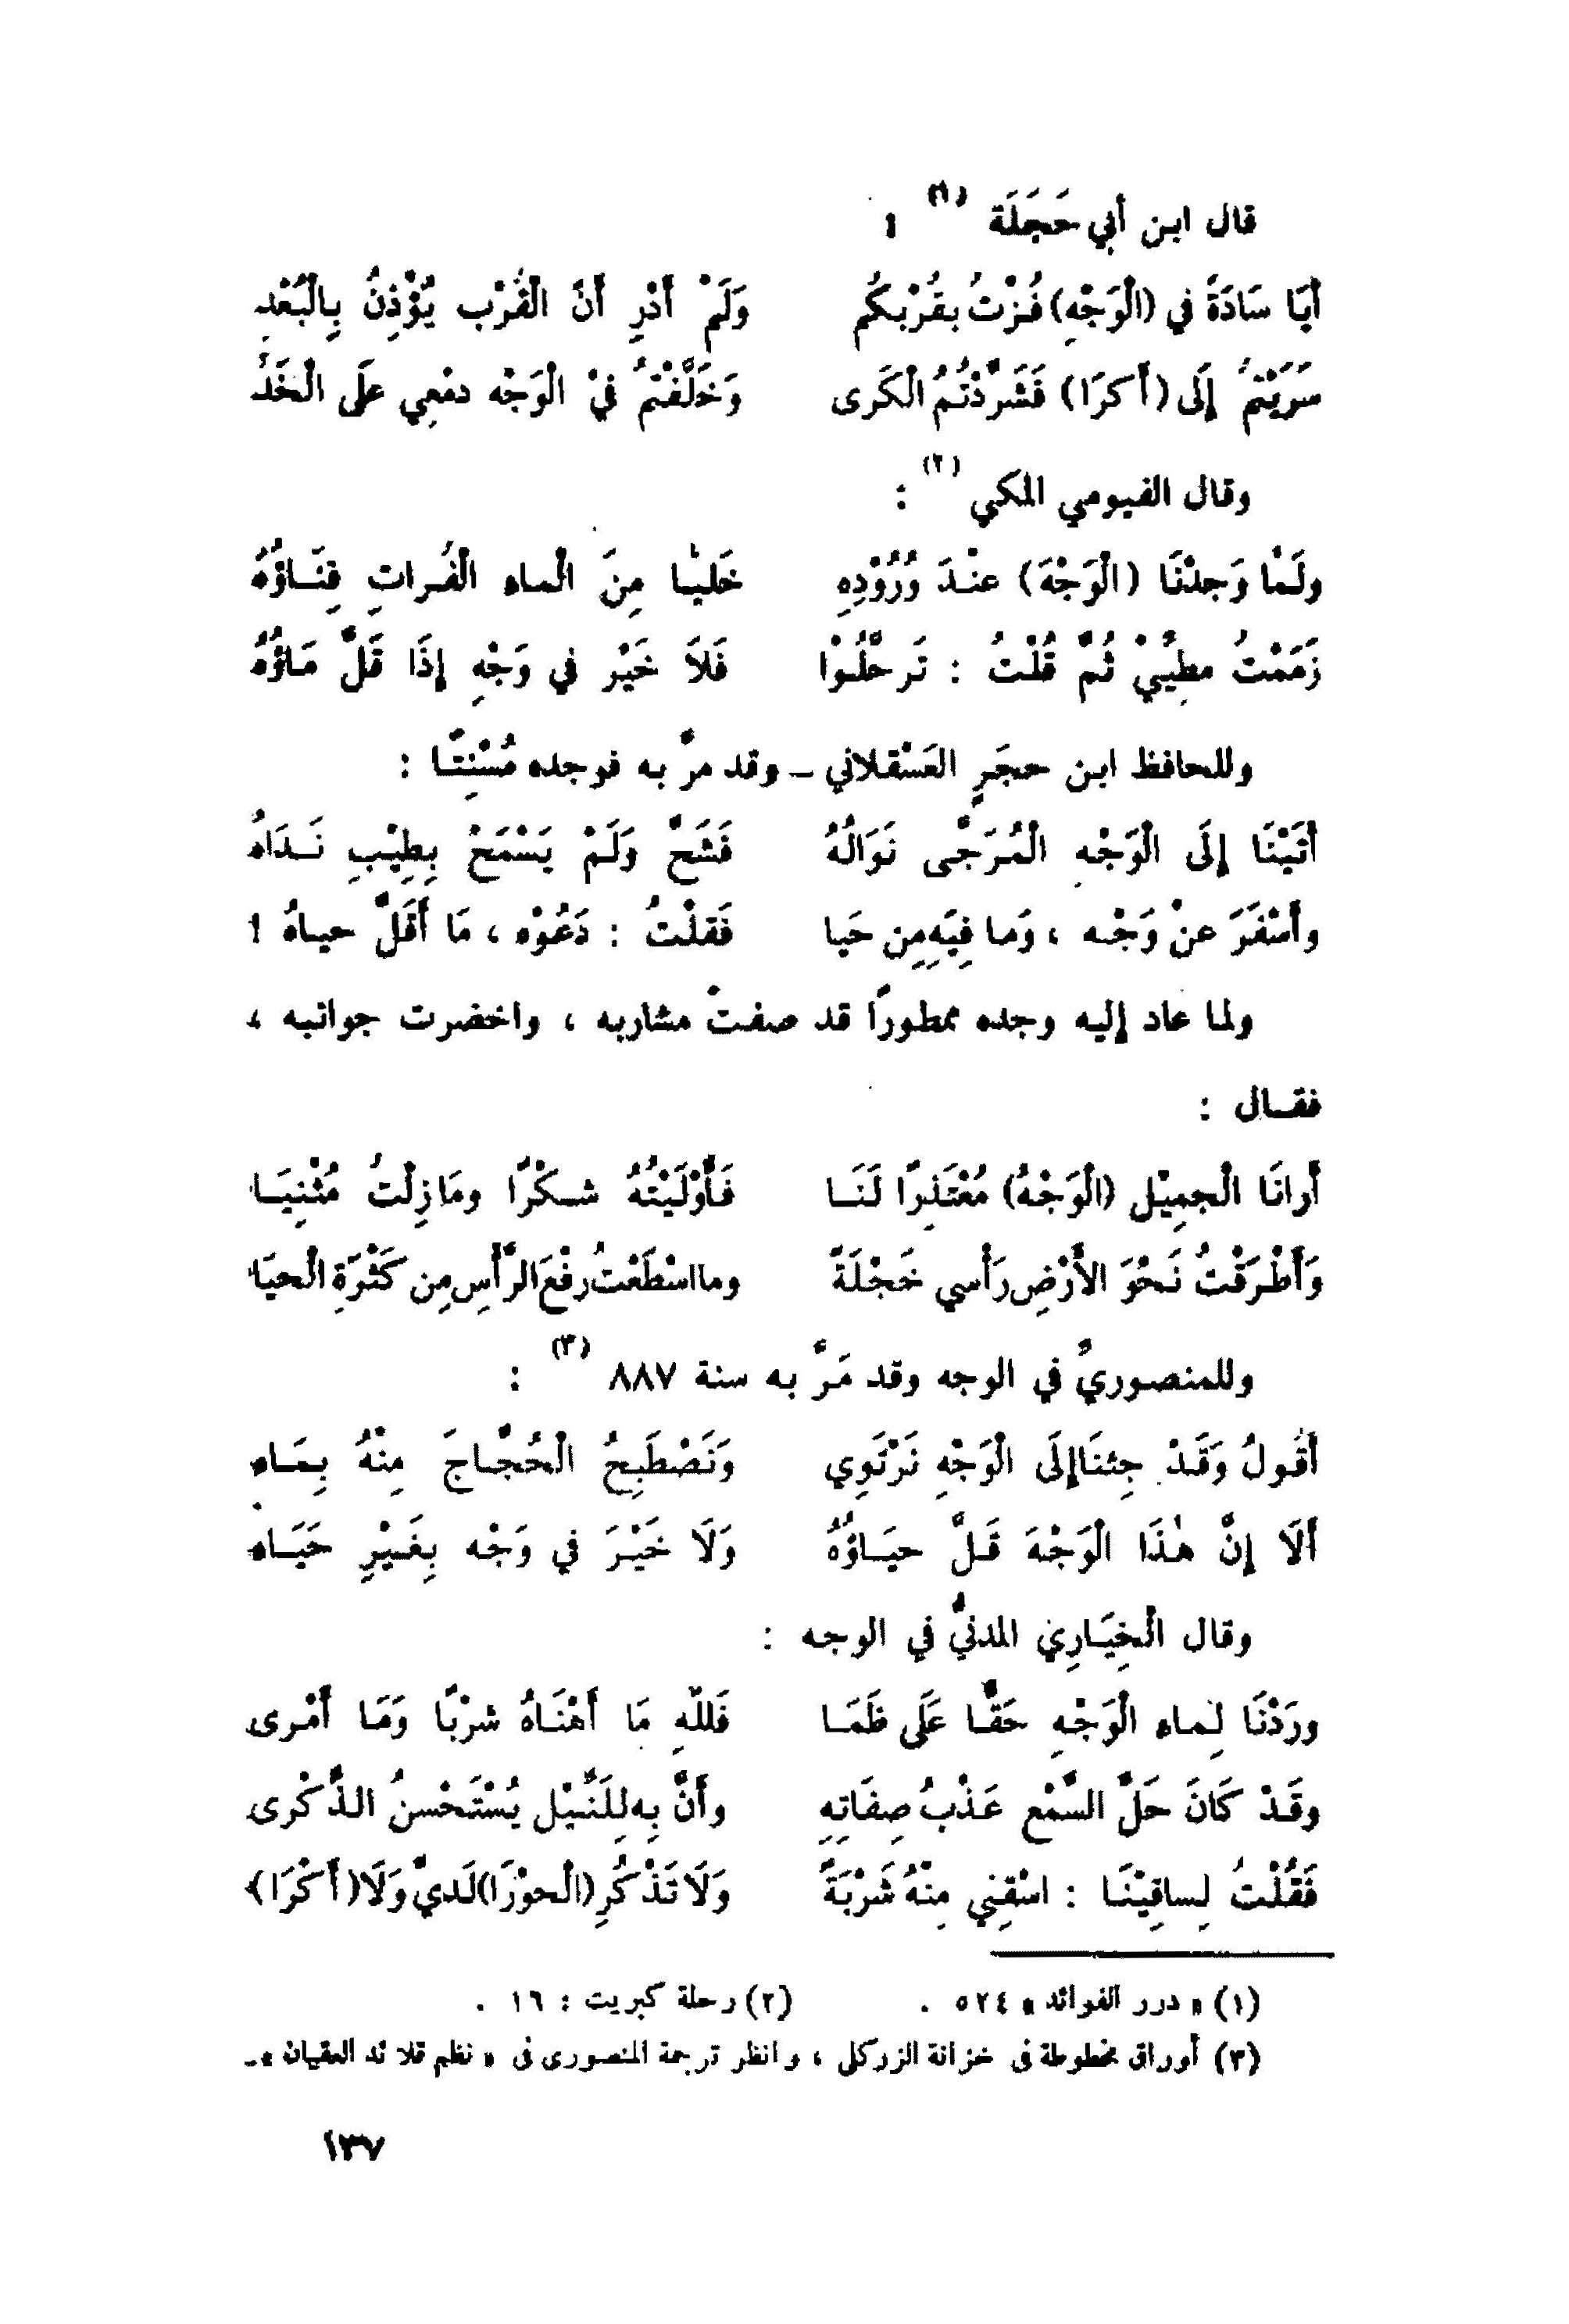 قال ابن أبي حَجَلَة (١) :
أيَا سَادَةً في (الْوَجْهِ) فُزْتُ بقُرْبكُم وَلَمْ أدْرِ أنَّ الْقُرْب يُؤْذِنُ بِالْبُعْدِ
سَرَيْتمُ إلَى (أكرَا) فَشَرَّدْتُمُ الْكَرى وَخَلَّفْتمُ فيْ الْوَجْه دمْعِي علَى الْخَدِّ
وقال الفيومي المكي (٢) :
ولَمَّا وَجدْنَا (الْوَجْهَ) عنْدَ وُرُوْدِهِ خَليًّا مِنَ الْماءِ الْفُراتِ فِنَاؤُهُ
زَمَمْتُ مطِيِّيْ ثُمَّ قُلْتُ : تَرحَّلُوْا فَلاَ خَيْر في وَجْهِ إذَا قَلَّ مَاؤُهُ
وللحافظ ابن حجَرٍ العَسْقلاني ـ وقد مرَّ به فوجده مُسْنِتًا :
أتَيْنَا إلَى الْوَجْهِ الْمُرَجَّى نَوَالُهُ فَشَحَّ وَلَمْ يَسْمَحْ بِطِيْبِ نَدَاهُ
وأَسْفَرَ عنْ وَجْه ، وَما فِيَهِ مِن حَيا فَقلْتُ : دَعُوْه ، مَا أَقَلَّ حياهُ !
ولما عاد إليه وجده ممطورًا قد صفتْ مشاربه ، واخضرت جوانبه ،
فقال :
أرانَا الْجمِيْل (الْوَجْهُ) مُعْتَذِرًا لَنَا فَأَوْلَيْتُهُ شكْرًا ومَازِلْتُ مُثْنِيَا
وَأَطْرَقْتُ نَحْوَ الأَرْضِ رَأْسي خَجْلَةً وما اسْطَعْتُ رفْعَ الرَّأْسِ مِن كَثْرَةِ الْحيَا
وللمنصوريِّ في الوجه وقد مَرَّ به سنة ٨٨٧ (٣) :
أقُولُ وَقَدْ جِئنَا إلَى الْوَجْهِ نَرْتَوِي وَنَصْطَبِحُ الْحُجَّاجَ مِنْهُ بِمَاءِ
أَلَا إنَّ هٰذَا الْوَجْهَ قَلَّ حيَاؤُهُ وَلَا خَيْرَ في وَجْه بِغَيْرِ حَيَاء
وقال الْخِيَارِي المدنيُّ في الوجه :
وردْنَا لِماءِ الْوَجْهِ حَقًّا عَلَى ظَمَا فَللّهِ مَا أَهْنَاهُ شرْبًا وَمَا أَمْرى
وقَدْ كَانَ حَلَّ السَّمْع عَذْبُ صِفَاتِهِ وأَنَّ بِه لِلَنِّيْل يُسْتَحْسنُ الذِّكْرى
فَقُلْتُ لِساقِيْنَا : اسْقِنِي مِنْهُ شَرْبَةً وَلَا تَذْكُرِ (الْحوْرَا) لَديَّ وَلَا (أَكْرَا)
(١) « درر الفوائد » ٥٢٤ . (٢) رحلة كبريت : ١٦ .
(٣) أوراق مخطوطة فى خزانة الزركلى ، وانظر ترجمة المنصورى فى « نظم قلائد العقيان » ـ
١٣٧